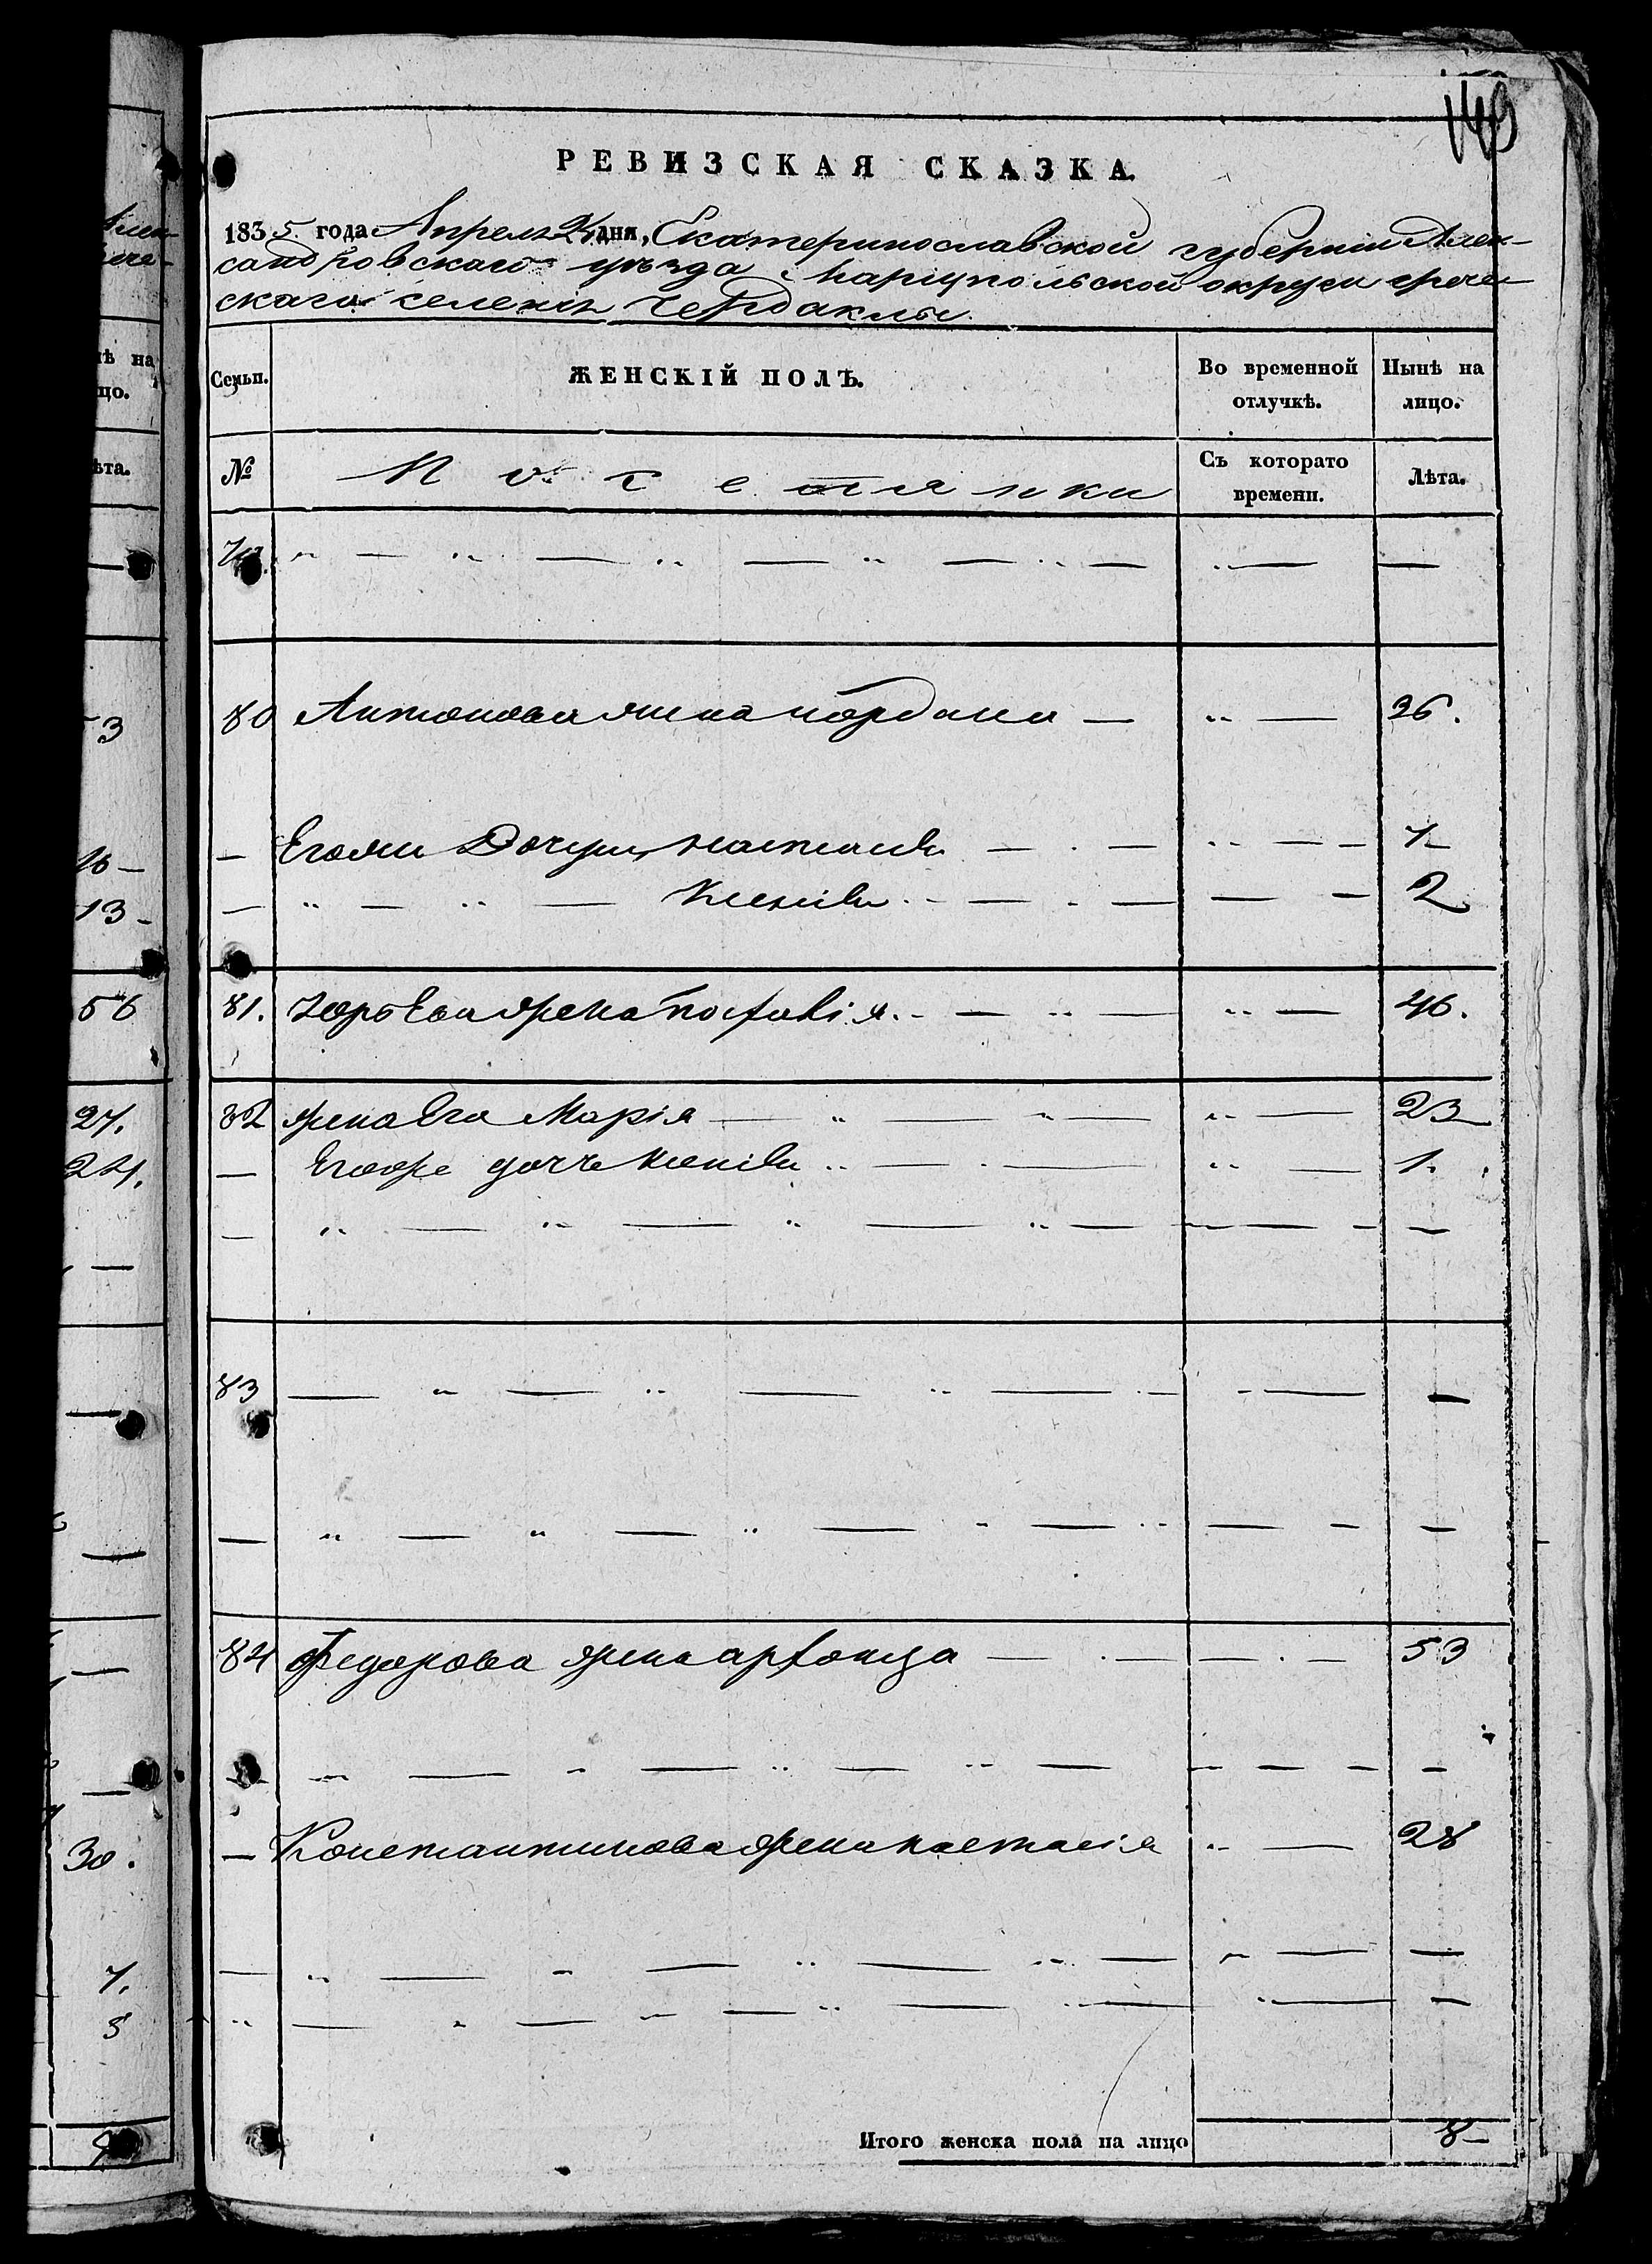 149
РЕВИЗСКАЯ СКАЗКА.
1835. года Апреля 24 дня, Екатеринославской губернии Алек-
сандровскаго уезда Мариупольской округи грече-
скаго селения Чердаклы.
Семьи. ЖЕНСКІЙ ПОЛЪ. Во временной отлучкѣ. Нынѣ на лицо.
№ Поселянки Съ которато времени. Лѣта.
80 Антонова жена кордана — „ — 36.
— Егоже Дочери, настасия — . — „ — 7
— „ — „ — Ксенія . — . — — 2
81. Юрьева жена софія . — „ — „ — 46.
82 жена Его Марія — „ — „ — „ — 23
— Егоже дочь Ксенія „ — . — „ — 1.
— „ — „ — „ — „ — — —
83 — „ — „ — „ — . — — —
— „ — „ — „ — „ — — —
84 Федорова жена — . — — . — 53
— Константинова жена настасія „ — 28
Итого женска пола на лицо 8
ѣ на
цо.
ѣта.
3
16 —
13 —
56
27.
24.
30.
7.
5